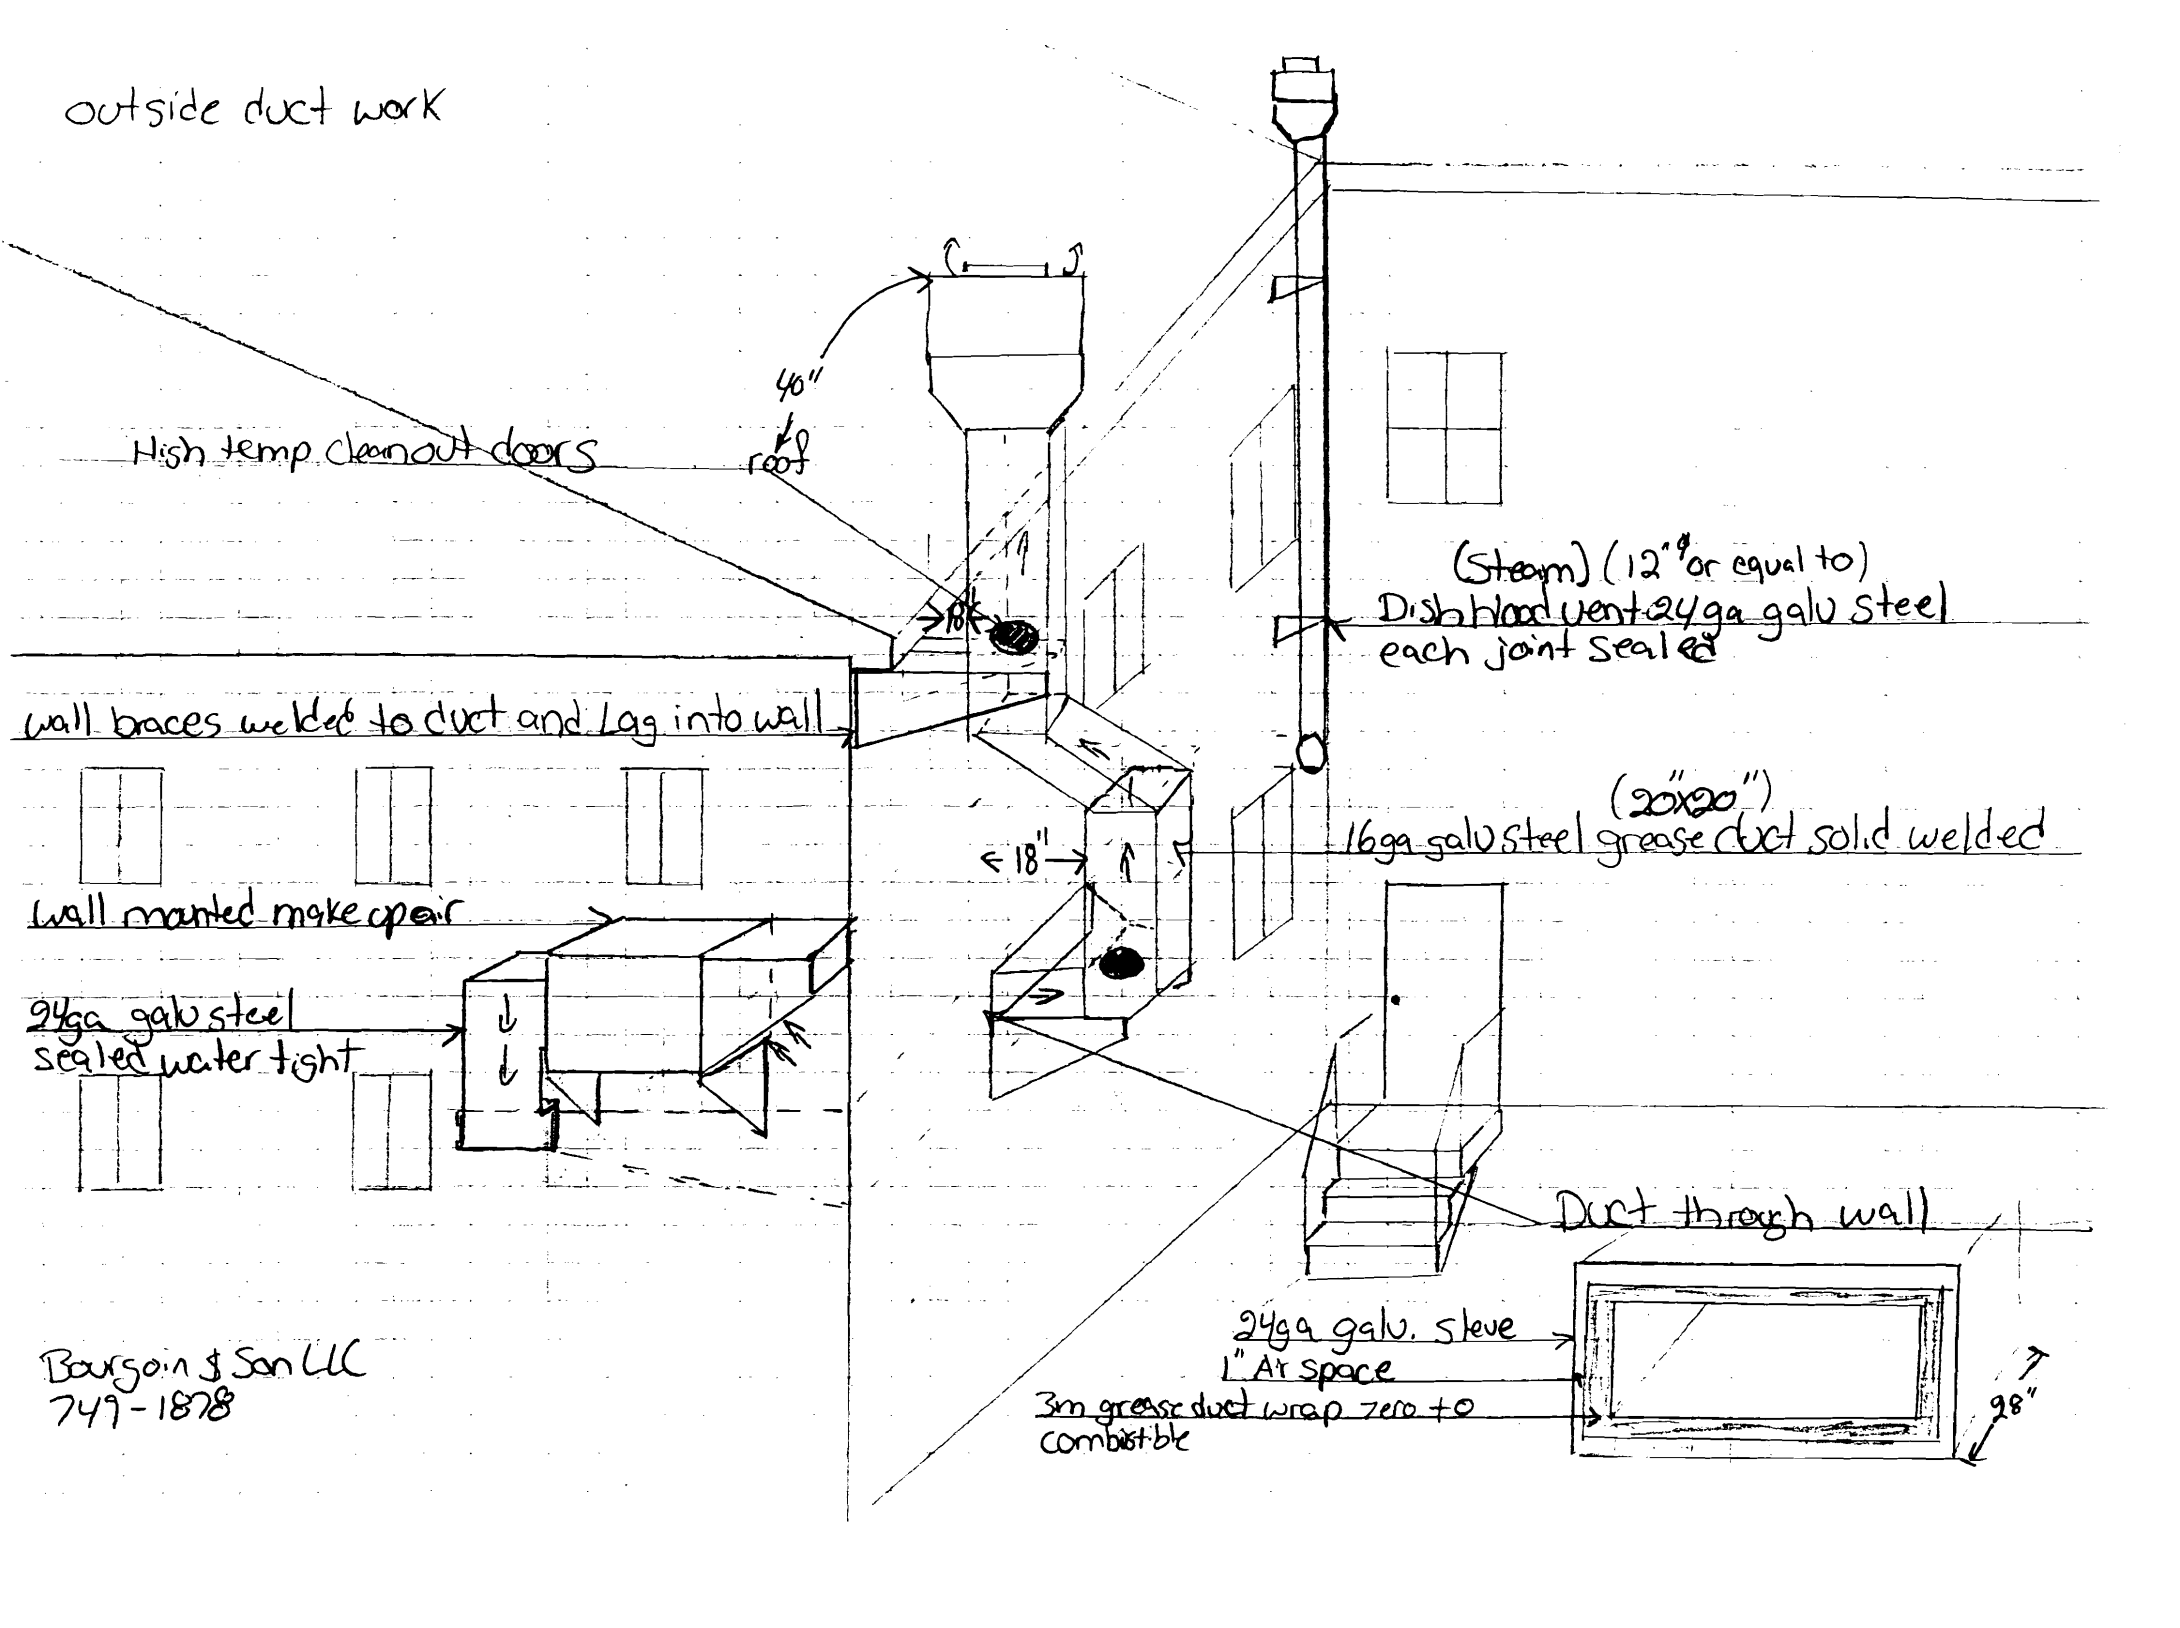 outside duct work
40"
High temp cleanout doors
roof
18"
(Steam) (12"φ or equal to)
Dish Hood vent 24ga galv steel
each joint sealed
wall braces welded to duct and Lag into wall
(20"x20")
16ga galv steel grease duct solid welded
18"
wall mounted make up air
24ga galv steel
sealed water tight
Duct through wall
24ga galv. sleve
1" Air space
3m grease duct wrap zero to
combistible
28"
Bourgoin & Son LLC
749-1878